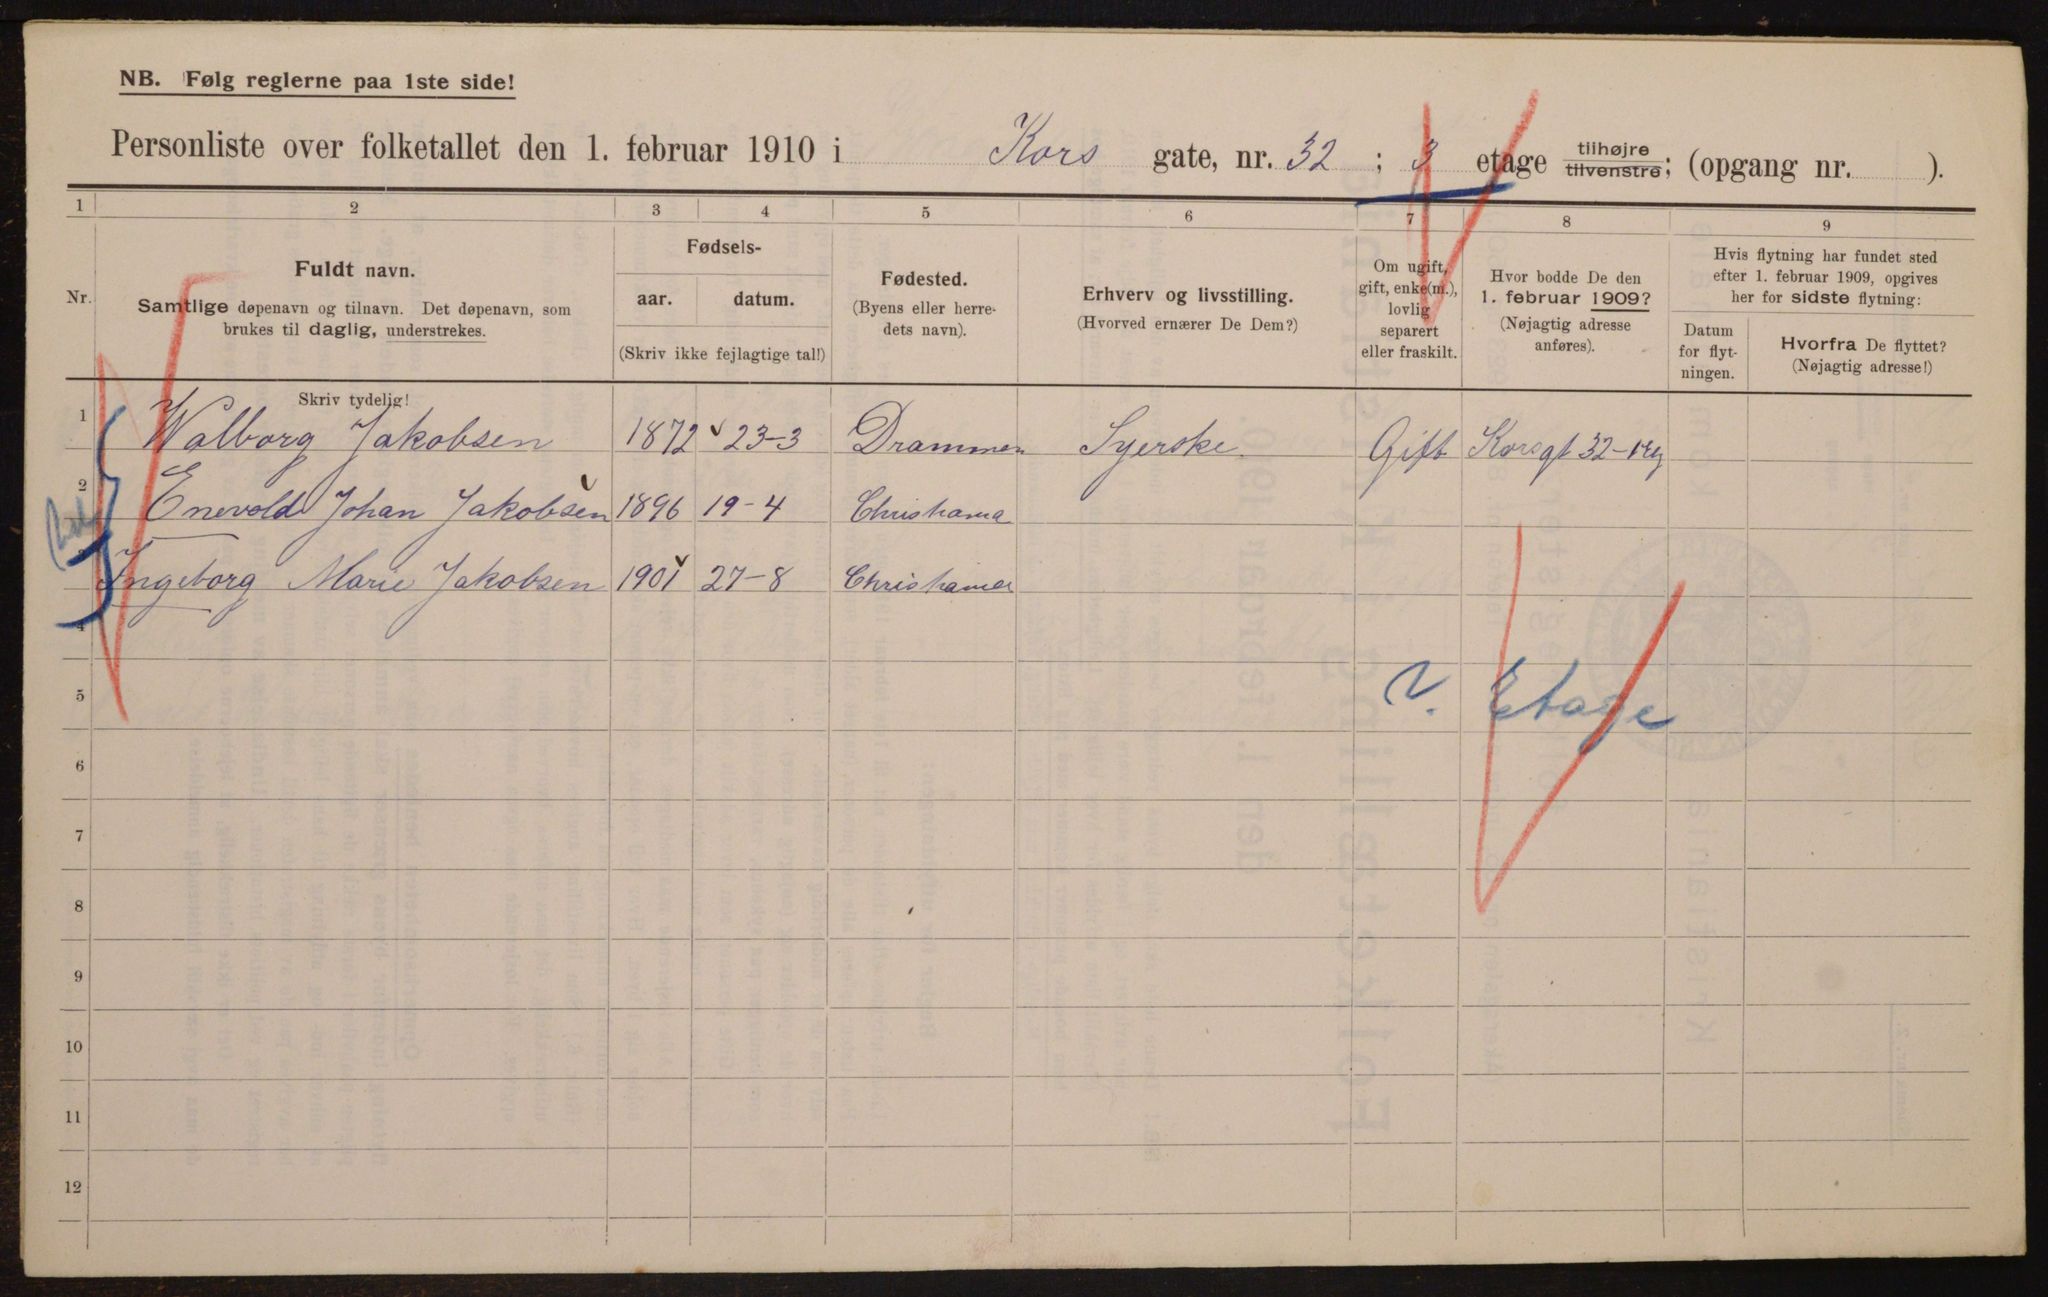 NB. Følg reglerne paa 1ste side!
Personliste over folketallet den 1. februar 1910 i Kors gate, nr. 32 ; 3 etage tilhøjre tilvenstre; (opgang nr. ).
1 2 3 4 5 6 7 8 9
Nr.
Fuldt navn.
Samtlige døpenavn og tilnavn. Det døpenavn, som
brukes til daglig, understrekes.
Fødsels-
aar. datum.
(Skriv ikke fejlagtige tal!)
Fødested.
(Byens eller herre-
dets navn).
Erhverv og livsstilling.
(Hvorved ernærer De Dem?)
Om ugift,
gift, enke(m.),
lovlig
separert
eller fraskilt.
Hvor bodde De den
1. februar 1909?
(Nøjagtig adresse
anføres).
Hvis flytning har fundet sted
efter 1. februar 1909, opgives
her for sidste flytning:
Datum
for flyt-
ningen.
Hvorfra De flyttet?
(Nøjagtig adresse!)
Skriv tydelig!
1 Walborg Jakobsen 1872 23-3 Drammen Syerske Gift Korsgt 32
2 Enevold Johan Jakobsen 1896 19-4 Christiania
3 Ingeborg Marie Jakobsen 1901 27-8 Christiania
4
5
V. Etage
6
7
8
9
10
11
12